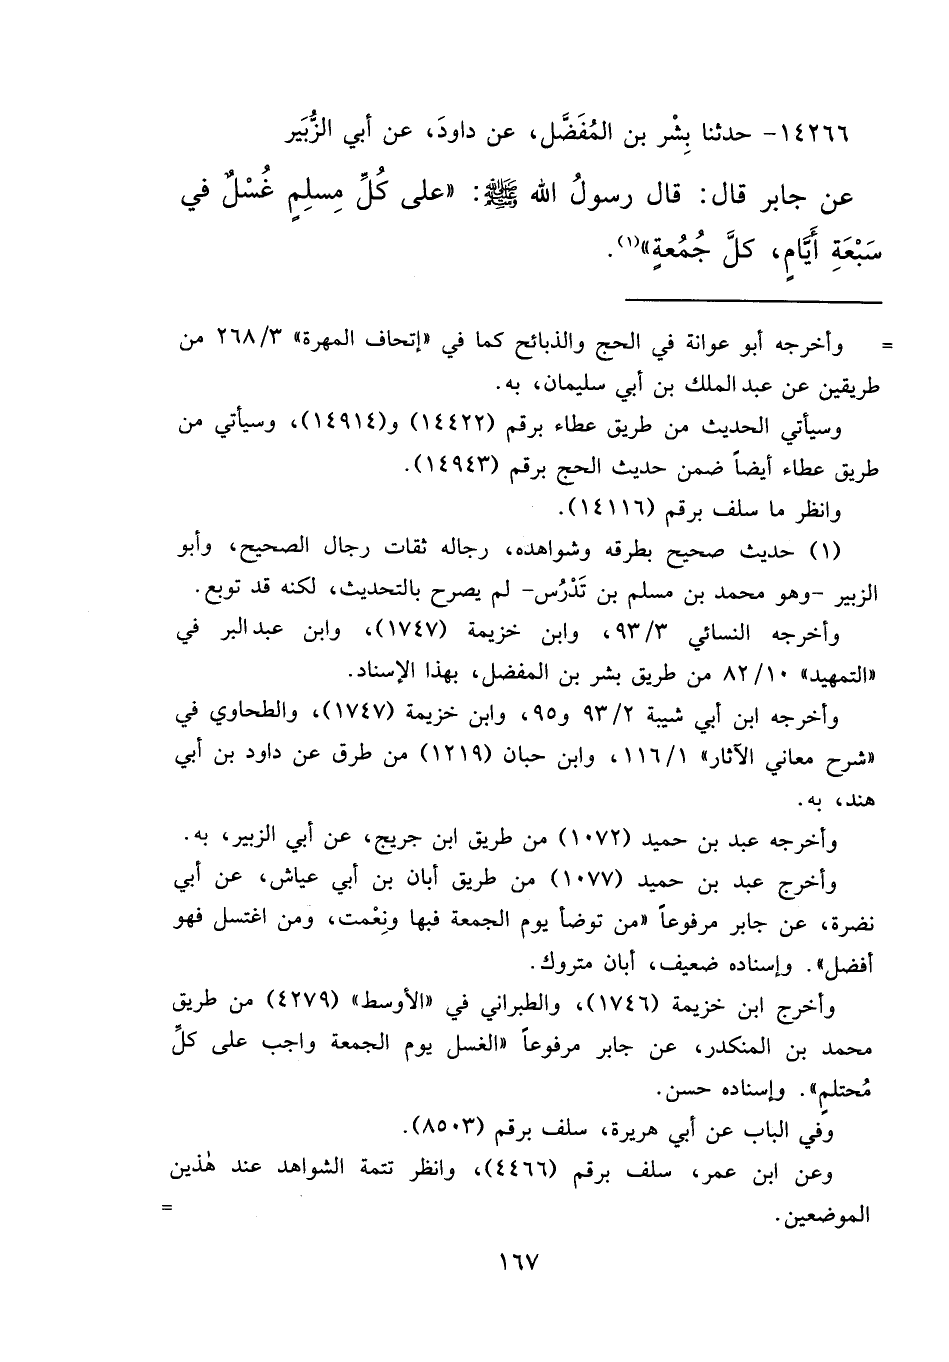 ١٤٢٦٦- حدثنا بِشْر بن المُفَضَّل، عن داودَ، عن أبي الزُّبَير
عن جابر قال: قال رسولُ الله ﷺ: «على كُلِّ مِسلِمٍ غُسْلٌ في
سَبْعَةِ أَيَّامٍ، كلَّ جُمُعةٍ»(١).
= وأخرجه أبو عوانة في الحج والذبائح كما في «إتحاف المهرة» ٢٦٨/٣ من
طريقين عن عبد الملك بن أبي سليمان، به.
وسيأتي الحديث من طريق عطاء برقم (١٤٤٢٢) و(١٤٩١٤)، وسيأتي من
طريق عطاء أيضاً ضمن حديث الحج برقم (١٤٩٤٣).
وانظر ما سلف برقم (١٤١١٦).
(١) حديث صحيح بطرقه وشواهده، رجاله ثقات رجال الصحيح، وأبو
الزبير -وهو محمد بن مسلم بن تَدْرُس- لم يصرح بالتحديث، لكنه قد توبع.
وأخرجه النسائي ٩٣/٣، وابن خزيمة (١٧٤٧)، وابن عبد البر في
«التمهيد» ٨٢/١٠ من طريق بشر بن المفضل، بهذا الإسناد.
وأخرجه ابن أبي شيبة ٩٣/٢ و٩٥، وابن خزيمة (١٧٤٧)، والطحاوي في
«شرح معاني الآثار» ١١٦/١، وابن حبان (١٢١٩) من طرق عن داود بن أبي
هند، به.
وأخرجه عبد بن حميد (١٠٧٢) من طريق ابن جريج، عن أبي الزبير، به.
وأخرج عبد بن حميد (١٠٧٧) من طريق أبان بن أبي عياش، عن أبي
نضرة، عن جابر مرفوعاً «من توضأ يوم الجمعة فبها ونِعْمت، ومن اغتسل فهو
أفضل». وإسناده ضعيف، أبان متروك.
وأخرج ابن خزيمة (١٧٤٦)، والطبراني في «الأوسط» (٤٢٧٩) من طريق
محمد بن المنكدر، عن جابر مرفوعاً «الغسل يوم الجمعة واجب على كلِّ
مُحتلمٍ». وإسناده حسن.
وفي الباب عن أبي هريرة، سلف برقم (٨٥٠٣).
وعن ابن عمر، سلف برقم (٤٤٦٦)، وانظر تتمة الشواهد عند هٰذين
الموضعين. =
١٦٧